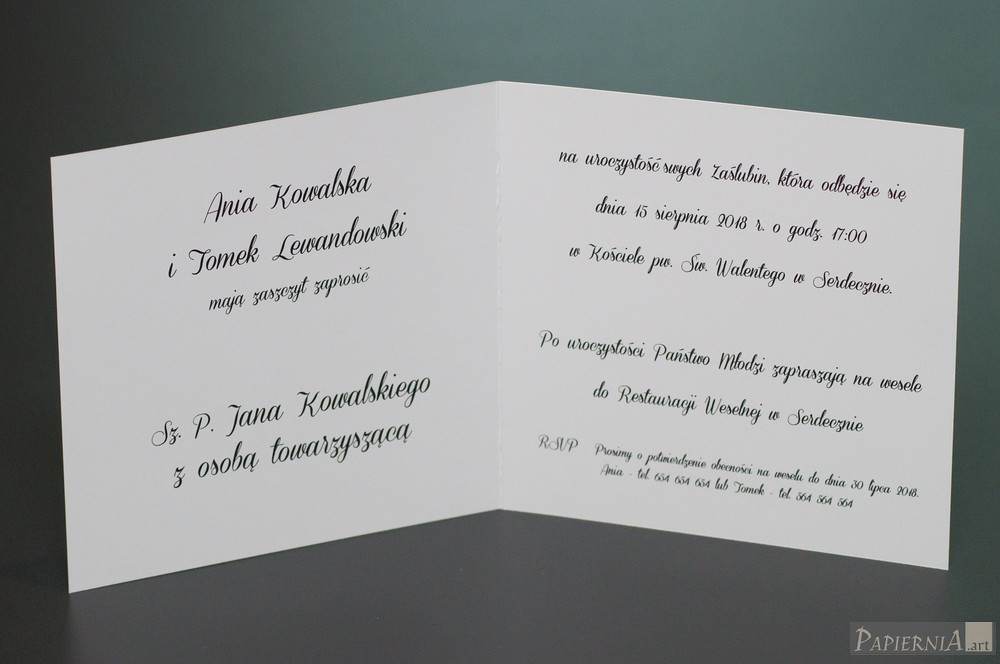 Ania Kowalska
i Tomek Lewandowski
mają zaszczyt zaprosić
Sz. P. Jana Kowalskiego
z osobą towarzyszącą
na uroczystość swych Zaślubin, która odbędzie się
dnia 15 sierpnia 2018 r. o godz. 17:00
w Kościele pw. Św. Walentego w Serdecznie.
Po uroczystości Państwo Młodzi zapraszają na wesele
do Restauracji Weselnej w Serdecznie
RSVP Prosimy o potwierdzenie obecności na weselu do dnia 30 lipca 2018.
Ania - tel. 654 654 654 lub Tomek - tel. 564 564 564
PAPIERNIA.art